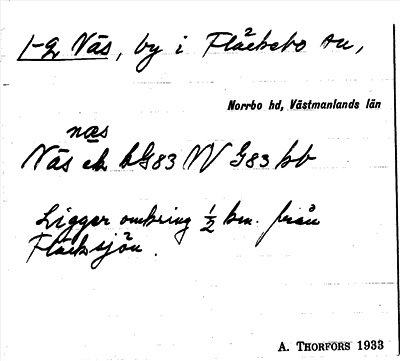 1-2 Näs, by i Fläckebo sn,
Norrbo hd, Västmanlands län
næs
Näs ek bG83 NV G83 bb
Ligger omkring ½ km. från
Fläcksjön.
A. THORFORS 1933